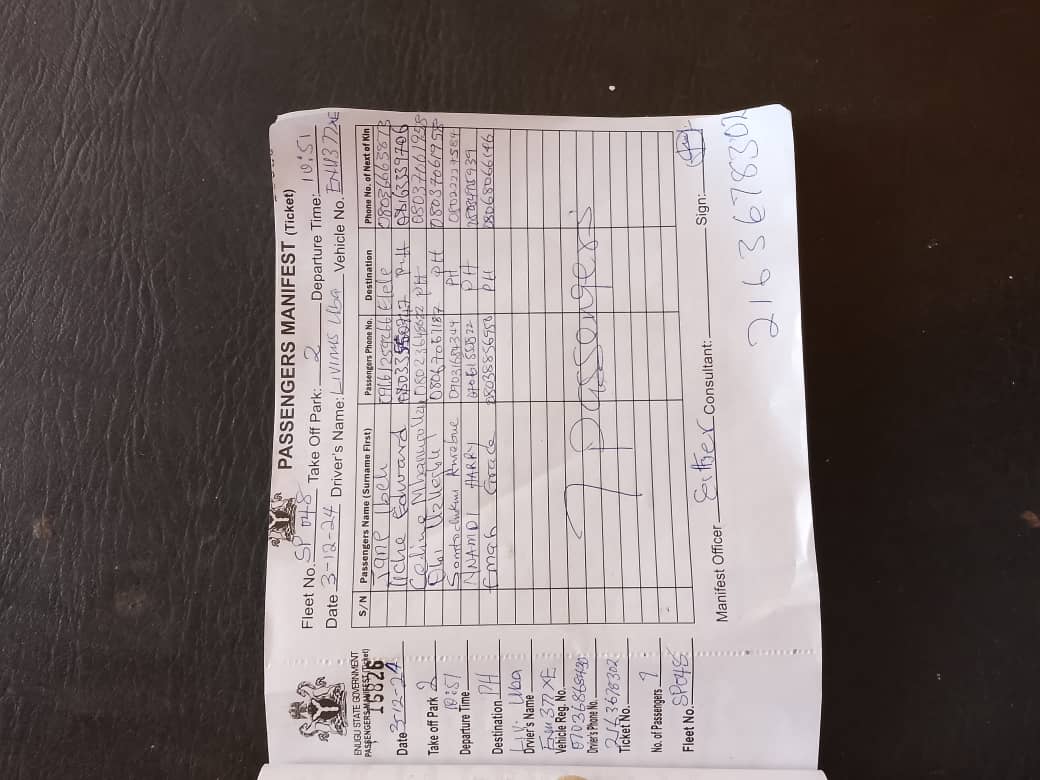 ENUGU STATE GOVERNMENT
PASSENGERS MANIFEST (Ticket)
16826
Date 3-12-24
Take off Park 2
Departure Time 10:51
Destination PH
Driver's Name LIV. Uba
Vehicle Reg. No. ENU 377 XE
Driver's Phone No. 07036868430
Ticket No. 2163678302
No. of Passengers 7
Fleet No. SP048
PASSENGERS MANIFEST (Ticket)
Fleet No. SP 048 Take Off Park: 2 Departure Time: 10:51
Date 3-12-24 Driver's Name: LIVINUS Uba Vehicle No. ENU377XE
S/N Passengers Name (Surname First) Passengers Phone No. Destination Phone No. of Next of Kin
Jane Ibeh 09161259266 Elele 08036663873
Uche Edward PH 08163339706
Celine 08023648622 PH 08037061958
Obi 08067067187 PH 08037061958
Somtochukwu 07031684344 PH 08022227584
NNAMDI HARRY 07061558522 PH
Emah Grace 08038856950 PH 08068066146
7 passengers
Manifest Officer Esther Consultant: Sign:
2163678302